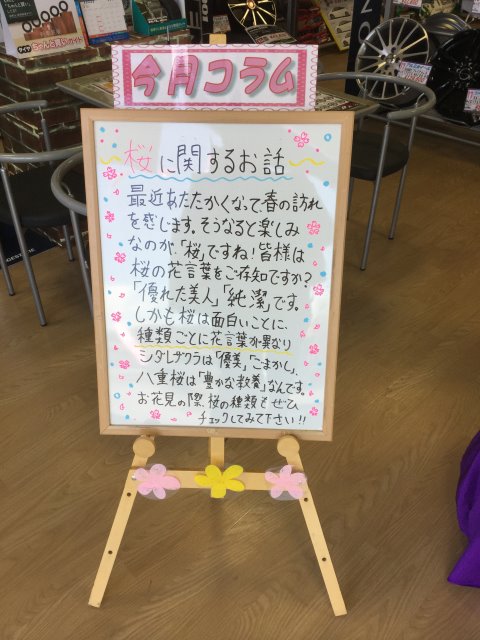 今月コラム
桜に関するお話
最近あたたかくなって、春の訪れ
を感じます。そうなると楽しみ
なのが、「桜」ですね!皆様は
桜の花言葉をご存知ですか?
「優れた美人」「純潔」です。
しかも桜は面白いことに、
種類ごとに花言葉が異なり
シダレザクラは「優美」「ごまかし」、
八重桜は「豊かな教養」なんです。
お花見の際、桜の種類もぜひ
チェックしてみて下さい!!